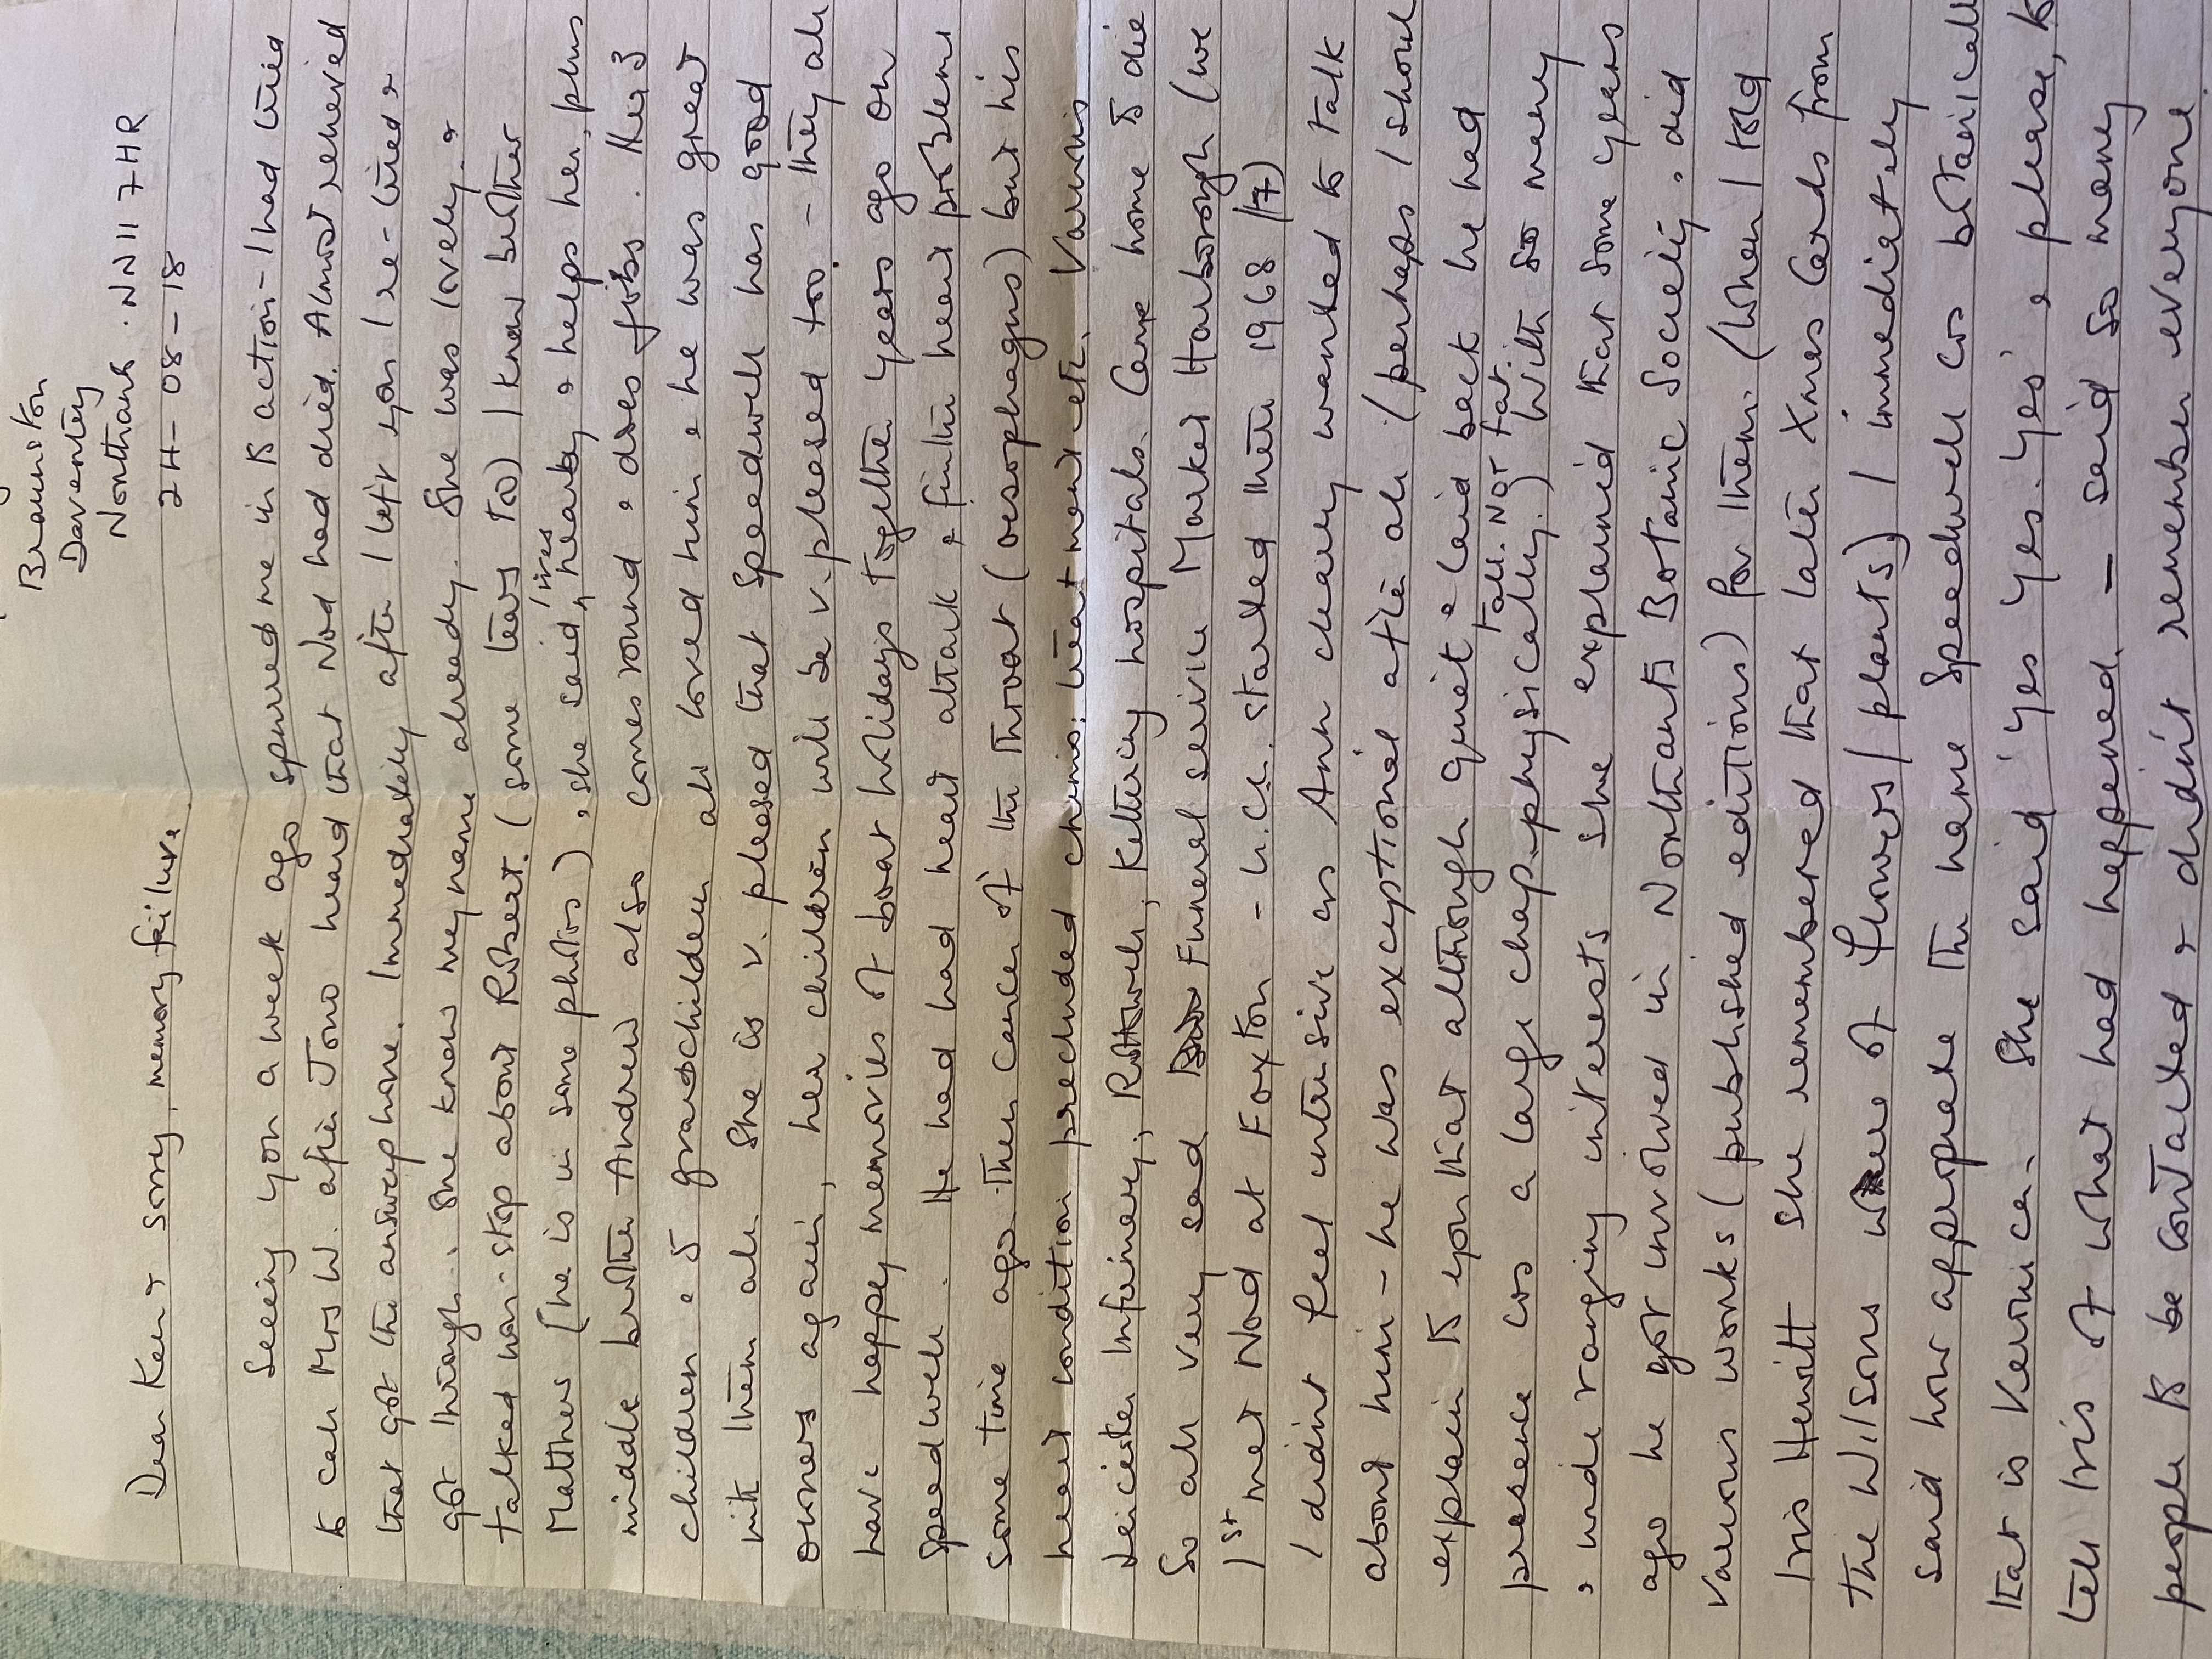 Braunston
Daventry
Northants. NN11 7HR
24-08-18
Dear Ken & sorry, memory failure.
Seeing you a week ago spurred me in to action - I had tried
to call Mrs W. after Jono heard that Nod had died. Almost relieved
that got the answerphone. Immediately after I left you I re-tried &
got through. She knew my name already. She was lovely &
talked non-stop about Robert. (some tears too) I know brother
Matthew (he is in some photos), she said, lives nearby & helps her, plus
middle brother Andrew also comes round & does jobs. Her 3
children & 5 grandchildren all loved him & he was great
with them all. She is v. pleased that Speedwell has good
owners again, her children will be v. pleased too - they all
have happy memories of boat holidays together years ago on
Speedwell. He had had heart attack & further heart problems
some time ago. Then cancer of the throat (oesophagus) but his
heart condition precluded chemo: treatment etc. Various
Leicester Infirmary, Rothwell, Kettering hospitals. Came home to die
So all very sad. Funeral service Market Harborough (we
1st met Nod at Foxton - h.c. started there 1968/7)
I didnt feel intrusive as Ann clearly wanted to talk
about him - he was exceptional after all (perhaps I should
explain to you that although quiet & laid back he had
presence as a large chap - physically.) Tall. Not fat. With so many
& wide ranging interests she explained that some years
ago he got involved in Northants Botanic Society & did
various works (published editions) for them. (When I told
Iris Hewitt she remembered that later Xmas Cards from
the Wilsons were of flowers/plants) I immediately
said how appropriate the name Speedwell as botanically
that is Veronica. She said 'yes yes. yes. yes' & please, to
tell Iris of what had happened. - said so many
people to be contacted & didnt remember everyone.